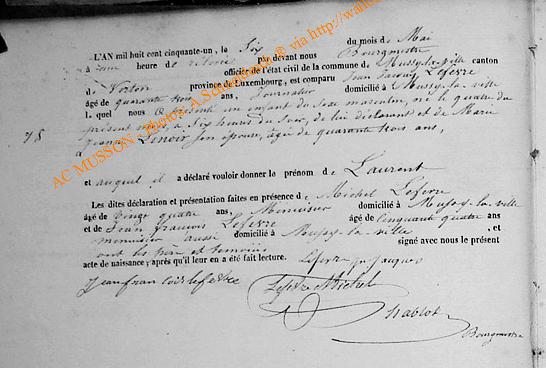 L'AN mil huit cent cinquante-un, le six du mois de Mai
à heure de relevée par devant nous Bourgmestre
officier de l'état civil de la commune de Mussy-la-ville canton
de Virton province de Luxembourg, est comparu Jean Jacques Lefevre
âgé de quarante trois ans, Journalier domicilié à Mussy-la-ville
lequel nous a présenté un enfant du sexe masculin, né le quatre du
75 présent mois, à six heures du soir, de lui déclarant et de Marie
Lenoir son épouse, âgée de quarante trois ans,
et auquel il a déclaré vouloir donner le prénom de Laurent
Les dites déclaration et présentation faites en présence de Michel Lefevre
âgé de vingt quatre ans, Menuisier domicilié à Mussy-la-ville
et de Jean francois Lefevre âgé de cinquante quatre ans
menuisier aussi domicilié à Mussy-la-ville, et
ont les père et temoins signé avec nous le présent
acte de naissance, après qu'il leur en a été fait lecture. Lefevre Jacques
Jean francois lefevre
Lefevre Michel
Bourgmestre
AC MUSSON - Photos A.S © via http://wa